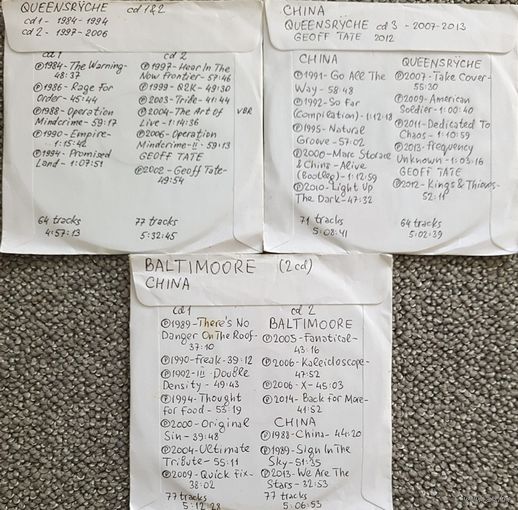 QUEENSRŸCHE cd 1&2
cd 1 - 1984-1994
cd 2 - 1997-2006
cd1
Ⓟ1984-The Warning-
48:37
Ⓟ1986-Rage For
Order-45:44
Ⓟ1988-Operation
Mindcrime-59:17
Ⓟ1990-Empire-
1:15:42
Ⓟ1994-Promised
Land-1:07:51
64 tracks
4:57:13
cd 2
Ⓟ1997-Hear In The
Now Frontier-57:46
Ⓟ1999-Q2K-49:30
Ⓟ2003-Tribe-41:44
Ⓟ2004-The Art of VBR
Live-1:14:36
Ⓟ2006-Operation
Mindcrime-II-59:13
GEOFF TATE
Ⓟ2002-Geoff Tate-
49:54
77 tracks
5:32:45
CHINA
QUEENSRŸCHE cd 3 - 2007-2013
GEOFF TATE 2012
CHINA
Ⓟ1991-Go All The
Way-58:48
Ⓟ1992-So Far
(Compilation)-1:12:18
Ⓟ1995-Natural
Groove-57:02
Ⓟ2000-Marc Storace
& China-Alive
(Bootleg)-1:12:59
Ⓟ2010-Light Up
The Dark-47:32
71 tracks
5:08:41
QUEENSRŸCHE
Ⓟ2007-Take Cover-
55:30
Ⓟ2009-American
Soldier-1:00:40
Ⓟ2011-Dedicated To
Chaos-1:10:59
Ⓟ2013-Frequency
Unknown-1:03:16
GEOFF TATE
Ⓟ2012-Kings & Thieves-
52:11
64 tracks
5:02:39
BALTIMOORE (2cd)
CHINA
cd1
Ⓟ1989-There's No
Danger On The Roof-
37:10
Ⓟ1990-Freak-39:12
Ⓟ1992-III Double
Density-49:43
Ⓟ1994-Thought
for food-53:19
Ⓟ2000-Original
Sin-39:48
Ⓟ2004-Ultimate
Tribute-55:11
Ⓟ2009-Quick Fix-
38:02
77 tracks
5:12:28
cd 2
BALTIMOORE
Ⓟ2005-Fanatical-
43:16
Ⓟ2006-Kaleidoscope-
47:52
Ⓟ2006-X-45:03
Ⓟ2014-Back for More-
41:52
CHINA
Ⓟ1988-China-44:20
Ⓟ1989-Sign In The
Sky-51:35
Ⓟ2013-We Are The
Stars-32:53
77 tracks
5:06:53